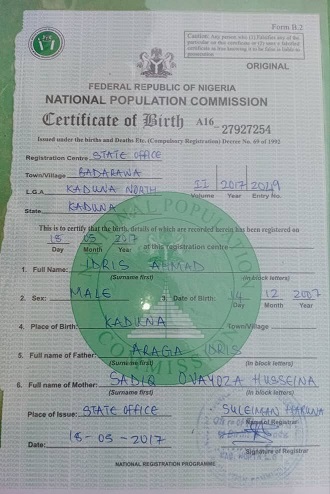 Form B.2
Caution: Any person who (1) Falsifies any of the
particular on this certificate or (2) uses a falsified
certificate as true knowing it to be false is liable to
prosecution
ORIGINAL
FEDERAL REPUBLIC OF NIGERIA
NATIONAL POPULATION COMMISSION
Certificate of Birth A16 27927254
Issued under the births and Deaths Etc. (Compulsory Registration) Decree No. 69 of 1992
Registration Centre STATE OFFICE
Town/Village BADARAWA
L.G.A KADUNA NORTH II 2017 2049
Volume Year Entry No.
State KADUNA
This is to certify that the birth, details of which are recorded herein has been registered on
18 05 2017 at this registration centre
Day Month Year
1. Full Name: IDRIS AHMAD
(Surname first) (in block letters)
2. Sex: MALE 3. Date of Birth: 14 12 2007
Day Month Year
4. Place of Birth: KADUNA Town/Village
5. Full name of Father: ARAGA IDRIS
(Surname first) (In block letters)
6. Full name of Mother: SADIQ OVAYOZA HUSSEINA
(Surname first) (In block letters)
Place of Issue: STATE OFFICE SULEIMAN
Name of Registrar
Date: 18-05-2017
Signature of Registrar
NATIONAL REGISTRATION PROGRAMME
NATIONAL POPULATION COMMISSION